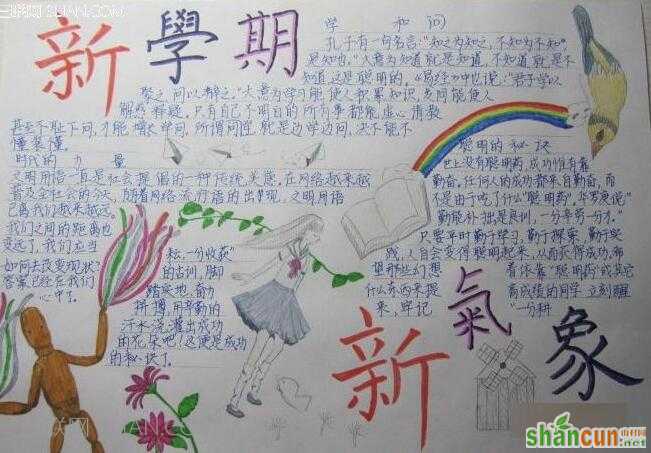 新學期
学和问
孔子有一句名言:“知之为知之,不知为不知”
是知也。”大意为知道就是知道,不知道就是不
知道这是聪明的。《易经》中也说:“君子学以
聚之,问以辩之。”大意为学习能使人积累知识,多问能使人
解惑释疑。只有自己不明白的所有事都能虚心请教
甚至不耻下问,才能增长学问,所谓问学就是边学边问,决不能不
懂装懂。
时代的力量
文明用语一直是社会提倡的一种传统美感。在网络越来越
普及全社会的今天,随着网络流行语的出现,文明用语
已离我们越来越远,
我们之间的距离也
变远了,我们应当
如何去改变现状?
答案已经在我们
心中了。
聪明的秘诀
世上没有聪明药,成功惟有靠
勤奋。任何人的成功都来自勤奋,而
不是由于吃了什么“聪明药”,华罗庚说:“
勤能补拙是良训,一分辛劳一分才。”
只要平时勤于学习,勤于探索,勤于实
践,人自会变得聪明起来,从而获得成功,希
望那些幻想着依靠“聪明药”或其它
什么东西来提高成绩的同学立刻醒
来,牢记“一分耕
耘,一分收获”
的古训,脚
踏实地,奋力
拼搏,用辛勤的
汗水浇灌出成功
的花朵吧!这便是成功
的秘诀了。
新氣象
shancun